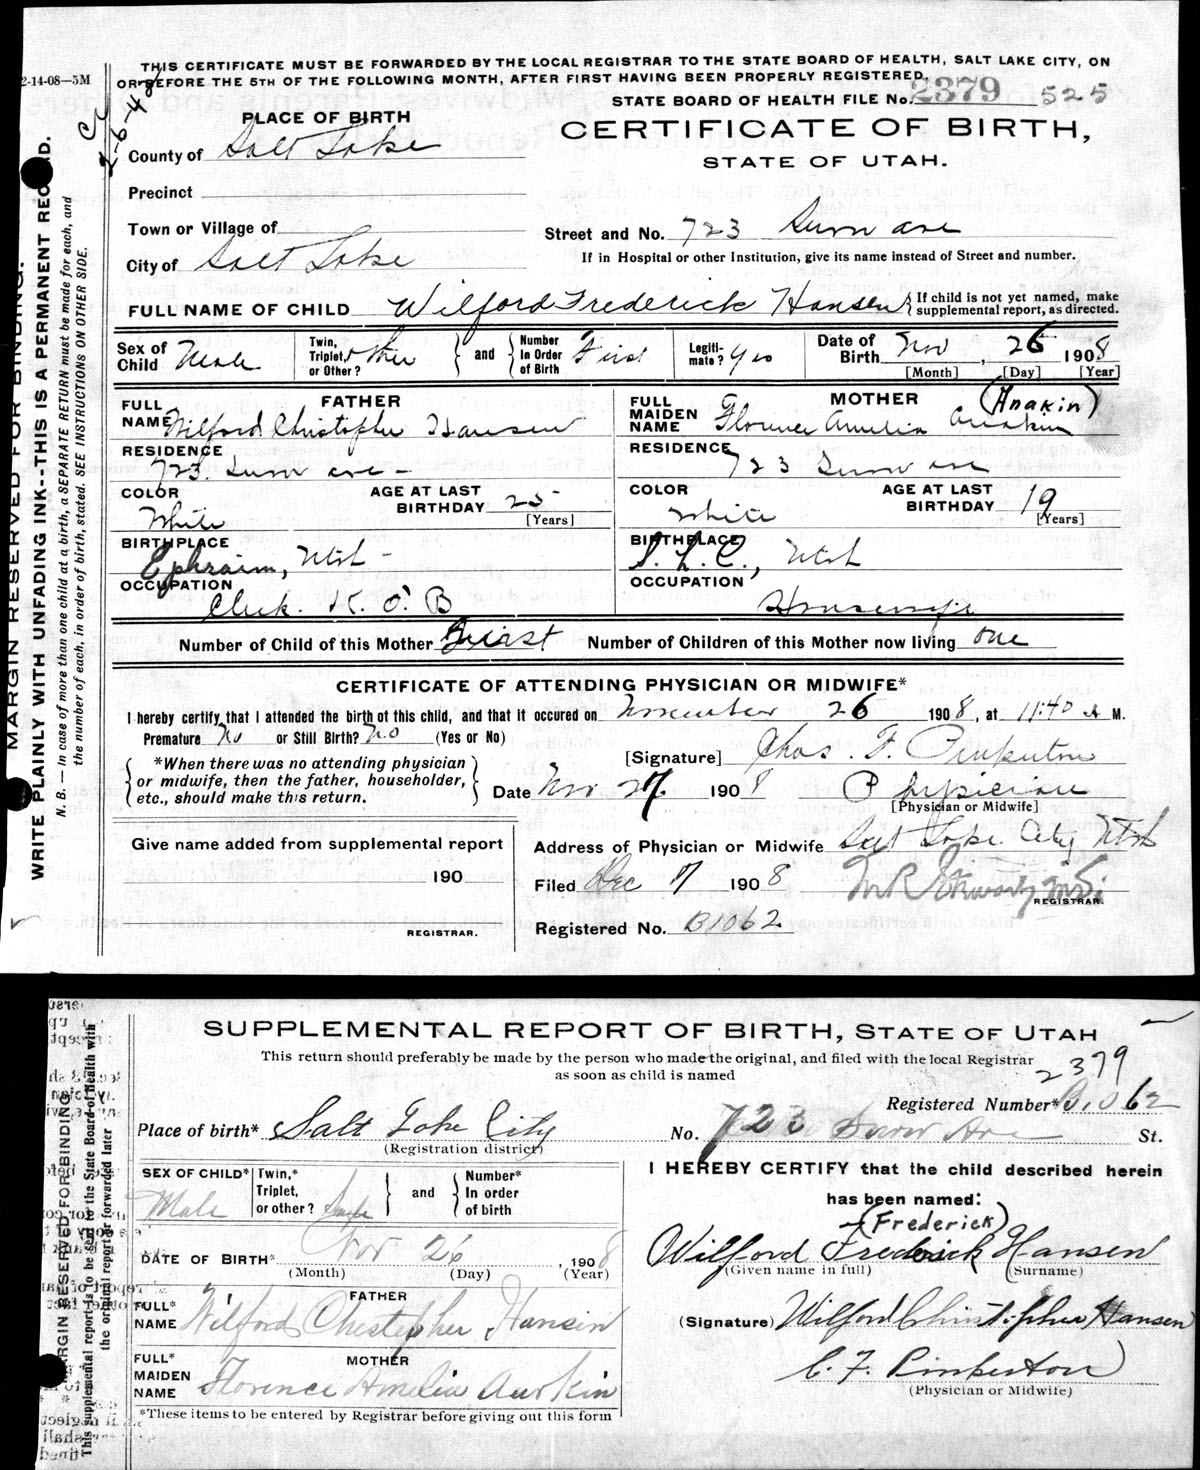 2-14-08—5M
THIS CERTIFICATE MUST BE FORWARDED BY THE LOCAL REGISTRAR TO THE STATE BOARD OF HEALTH, SALT LAKE CITY, ON
OR BEFORE THE 5TH OF THE FOLLOWING MONTH, AFTER FIRST HAVING BEEN PROPERLY REGISTERED.
STATE BOARD OF HEALTH FILE No. 2379 525
PLACE OF BIRTH
CERTIFICATE OF BIRTH,
STATE OF UTAH.
County of Salt Lake
Precinct
Town or Village of
Street and No. 723 ave
City of Salt Lake
If in Hospital or other Institution, give its name instead of Street and number.
FULL NAME OF CHILD Wilford Frederick Hansen { If child is not yet named, make
supplemental report, as directed.
Sex of Child Male
Twin, Triplet, or Other? other } and { Number In Order of Birth First
Legitimate? Yes
Date of Birth Nov, 26 1908
[Month] [Day] [Year]
FATHER
FULL NAME Wilford Christopher Hansen
RESIDENCE 723 ave -
COLOR White
AGE AT LAST BIRTHDAY 25 [Years]
BIRTHPLACE Ephraim, Utah -
OCCUPATION Clerk. O. B
MOTHER (Anakin)
FULL MAIDEN NAME Florence Amelia
RESIDENCE 723 ave
COLOR White
AGE AT LAST BIRTHDAY 19 [Years]
BIRTHPLACE S. L. C., Utah
OCCUPATION Housewife
Number of Child of this Mother First Number of Children of this Mother now living one
CERTIFICATE OF ATTENDING PHYSICIAN OR MIDWIFE*
I hereby certify that I attended the birth of this child, and that it occured on November 26 1908, at 11:40 A M.
Premature No or Still Birth? No (Yes or No)
*When there was no attending physician
or midwife, then the father, householder,
etc., should make this return.
[Signature] Chas. F. Pinkerton
Date Nov 27 1908 Physician
[Physician or Midwife]
Give name added from supplemental report
190
REGISTRAR.
Address of Physician or Midwife Salt Lake City Utah
Filed Dec 7 1908
REGISTRAR.
Registered No. B1062
MARGIN RESERVED FOR BINDING.
WRITE PLAINLY WITH UNFADING INK--THIS IS A PERMANENT RECORD.
N. B.— In case of more than one child at a birth, a SEPARATE RETURN must be made for each, and
the number of each, in order of birth, stated. SEE INSTRUCTIONS ON OTHER SIDE.
SUPPLEMENTAL REPORT OF BIRTH, STATE OF UTAH
This return should preferably be made by the person who made the original, and filed with the local Registrar
as soon as child is named
2379
Registered Number* B1062
Place of birth* Salt Lake City
(Registration district)
No. 723 Ave St.
SEX OF CHILD* Male
Twin,* Triplet, or other? } and { Number* In order of birth
DATE OF BIRTH* Nov 26, 1908
(Month) (Day) (Year)
FATHER
FULL* NAME Wilford Chestepher Hansin
MOTHER
FULL* MAIDEN NAME Florence Amelia
*These items to be entered by Registrar before giving out this form
I HEREBY CERTIFY that the child described herein
has been named:
(Frederick)
Wilford Frederick Hansen
(Given name in full) (Surname)
(Signature) Wilford Christopher Hansen
C. F. Pinkerton
(Physician or Midwife)
MARGIN RESERVED FOR BINDING
This supplemental report is to be sent to the State Board of Health with
the original report or forwarded later